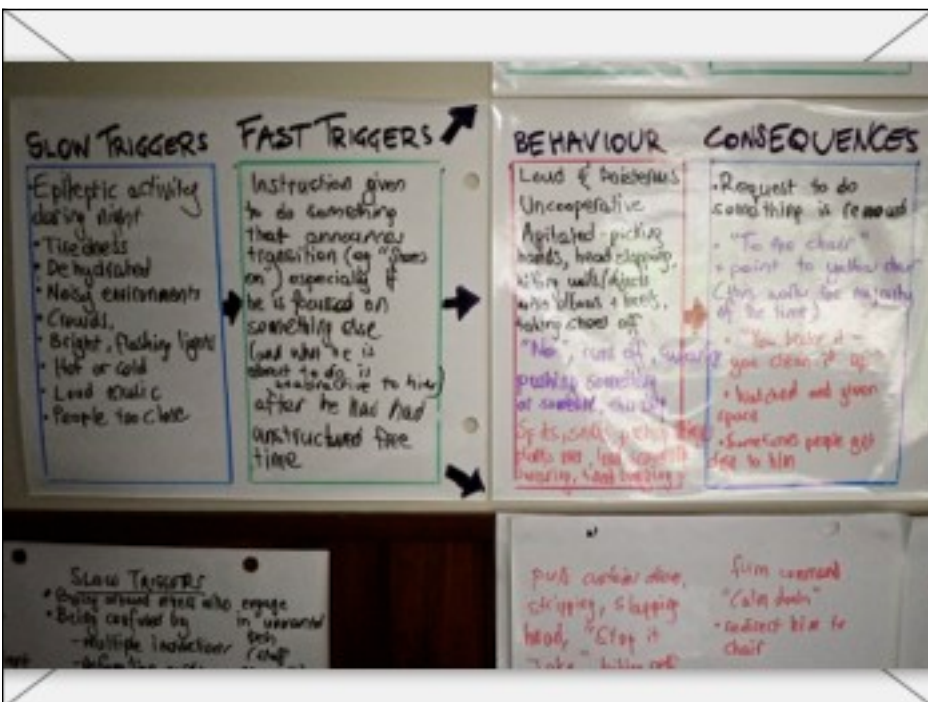 SLOW TRIGGERS
Epileptic activity
during night
• Tiredness
• Dehydrated
• Noisy environments
• Crowds,
• Bright, flashing lights
• Hot or cold
• Loud music
• People too close
FAST TRIGGERS
Instruction given
to do something
that announces
transition (eg "Shoes
on") especially if
he is focused on
something else
(and what he is
about to do is
unattractive to him)
after he has had
unstructured free
time
BEHAVIOUR
Loud & boisterous
Uncooperative
Agitated - picking
hands, head slapping,
hitting walls/objects
with elbows & heels,
taking shoes off
"No", run off, swearing
pushing something
or someone,
Spits,
swearing, head banging
CONSEQUENCES
• Request to do
something is removed
• "To the chair"
• point to yellow chair
(this works for majority
of the time)
you clean it up"
• Watched and given
space
• Sometimes people get
close to him
SLOW TRIGGERS
• Being around others who engage
in unwanted
beh
• Being confused by
- Multiple instructions
(staff
pull curtains down,
stripping, slapping
head, "Stop it
firm command
"Calm down"
• redirect him to
chair